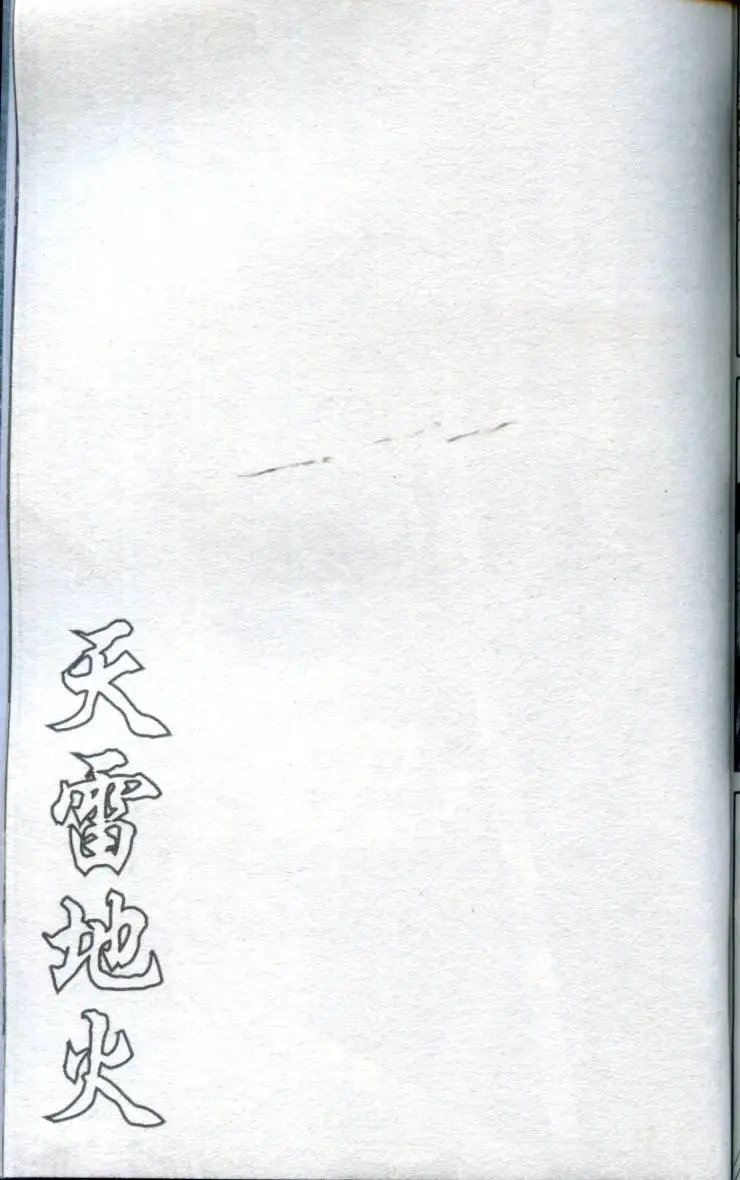 天雷地火